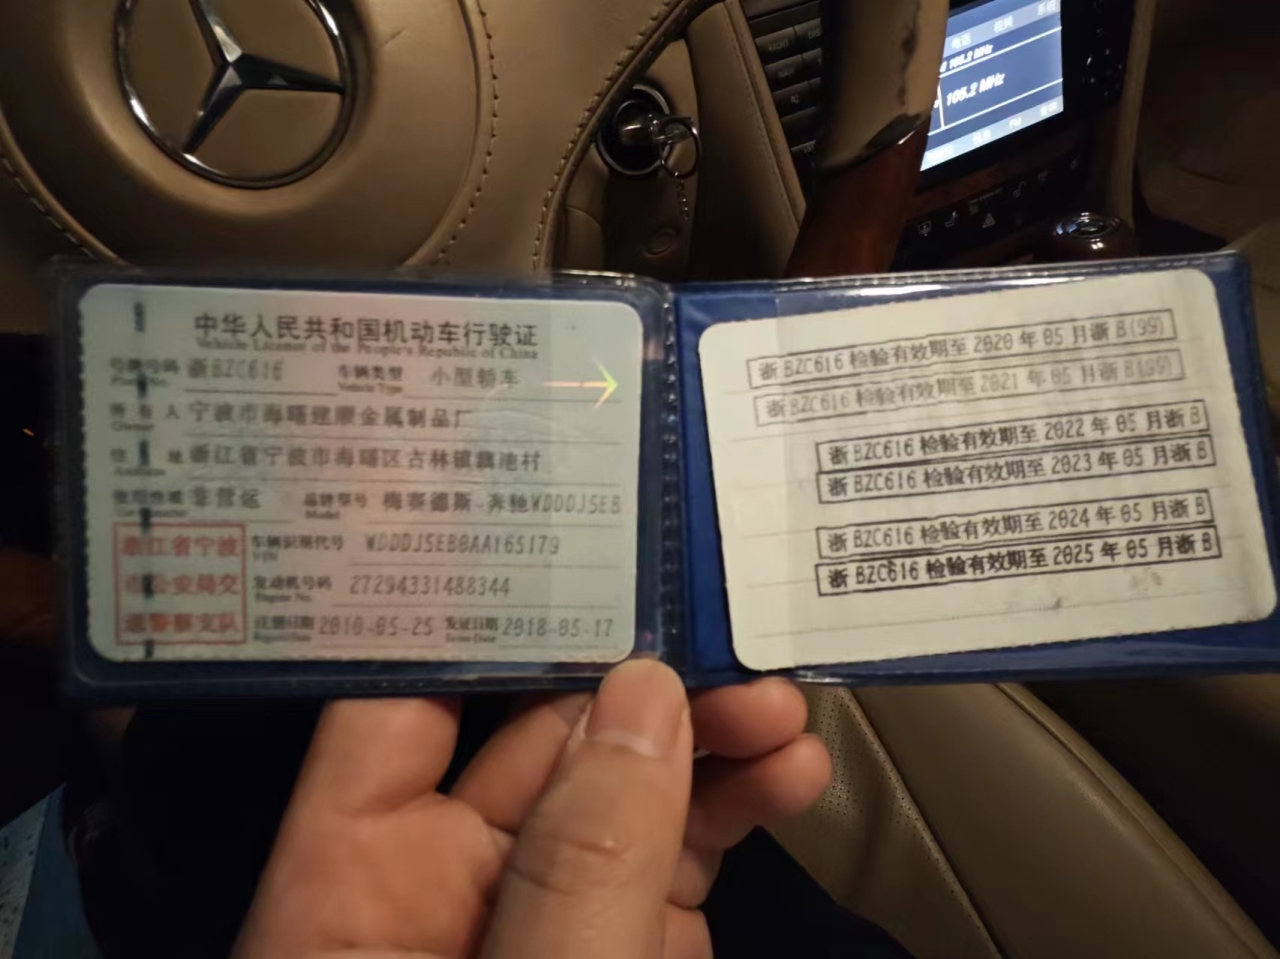 中华人民共和国机动车行驶证
Vehicle License of the People's Republic of China
号牌号码 浙BZC616 车辆类型 小型轿车
Plate No. Vehicle Type
所有人 宁波市海曙建顺金属制品厂
Owner
住址 浙江省宁波市海曙区古林镇藕池村
Address
使用性质 非营运 品牌型号 梅赛德斯-奔驰WDDDJ5EB
Model
浙江省宁波市公安局交通警察支队
车辆识别代号 WDDDJ5EB0AA165179
VIN
发动机号码 27294331488344
Engine No.
注册日期 2010-05-25 发证日期 2018-05-17
Issue Date
浙 BZC616 检验有效期至 2020 年 05 月浙 B(99)
浙 BZC616 检验有效期至 2021 年 05 月浙 B(99)
浙 BZC616 检验有效期至 2022 年 05 月浙 B
浙 BZC616 检验有效期至 2023 年 05 月浙 B
浙 BZC616 检验有效期至 2024 年 05 月浙 B
浙 BZC616 检验有效期至 2025 年 05 月浙 B
电话 视频 系统
105.2 MHz
105.2 MHz
FM